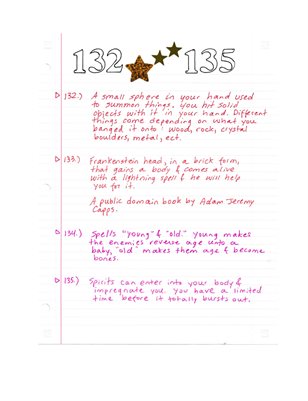 132 135
132.) A small sphere in your hand used
to summon things. you hit solid
objects with it in your hand. Different
things come depending on what you
banged it onto: wood, rock, crystal
boulders, metal, ect.
133.) Frankenstein head, in a brick form,
that gains a body & comes alive
with a lightning spell & he will help
you for it.
A public domain book by Adam Jeremy
Capps.
134.) Spells "young" & "old." young makes
the enemies reverse age into a
baby, "old" makes them age & become
bones.
135.) Spirits can enter into your body &
impregnate you. you have a limited
time before it totally bursts out.